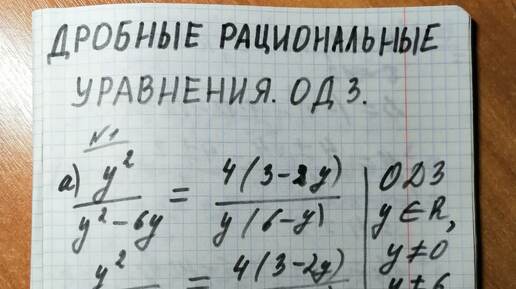 ДРОБНЫЕ РАЦИОНАЛЬНЫЕ
УРАВНЕНИЯ. ОДЗ.
№1
а) y² / (y² - 6y) = 4(3-2y) / y(6-y) | ОДЗ
y ∈ R,
y ≠ 0
y ≠ 6
y² = 4(3-2y)